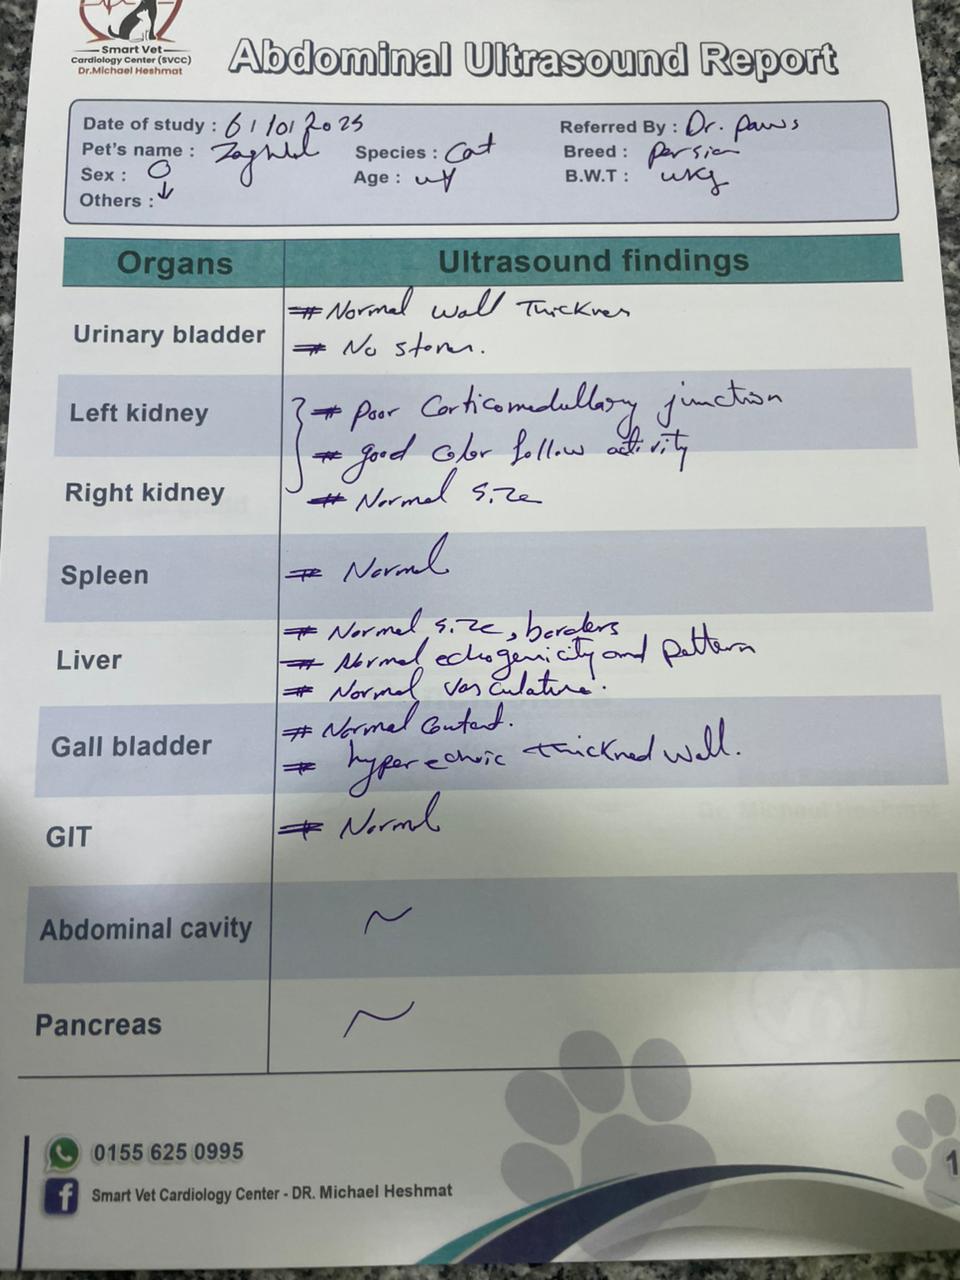 Smart Vet
Cardiology Center (SVCC)
Dr.Michael Heshmat
Abdominal Ultrasound Report
Date of study : 6 / /01/2025
Referred By : Dr. paws
Pet's name : Zaghlol
Species : Cat
Breed : persian
Sex :
Age : 4Y
B.W.T : 4kg
Others :
Organs
Ultrasound findings
Urinary bladder
# Normal wall Thicknes
# No stones.
Left kidney
# poor Corticomedullary junction
# good color follow activity
Right kidney
# Normal size
Spleen
# Normal
Liver
# Normal size, borders
# Normal echogenicity and pattern
# Normal vasculature.
Gall bladder
# Normal Content.
# hyperechoic thickned wall.
GIT
# Normal
Abdominal cavity
~
Pancreas
~
0155 625 0995
f
Smart Vet Cardiology Center - DR. Michael Heshmat
1